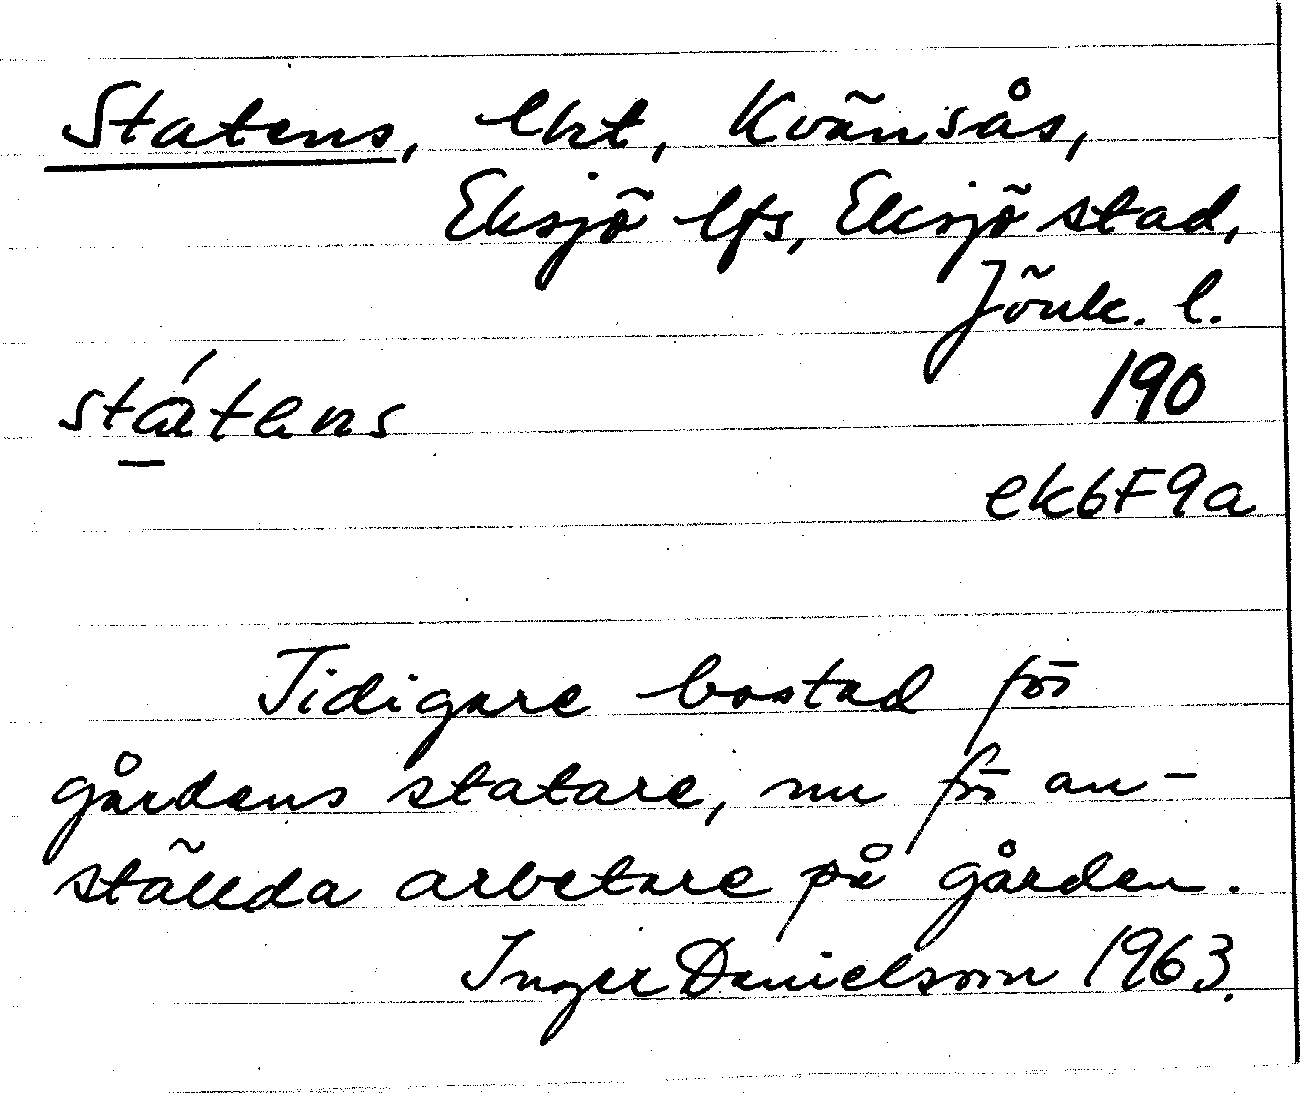 Statens, lht, Kvänsås,
Eksjö lfs, Eksjö stad,
Jönk. l.
státens
190
ek6F9a
Tidigare bostad för
gårdens statare, nu för an-
ställda arbetare på gården.
Inger Danielsson 1963.